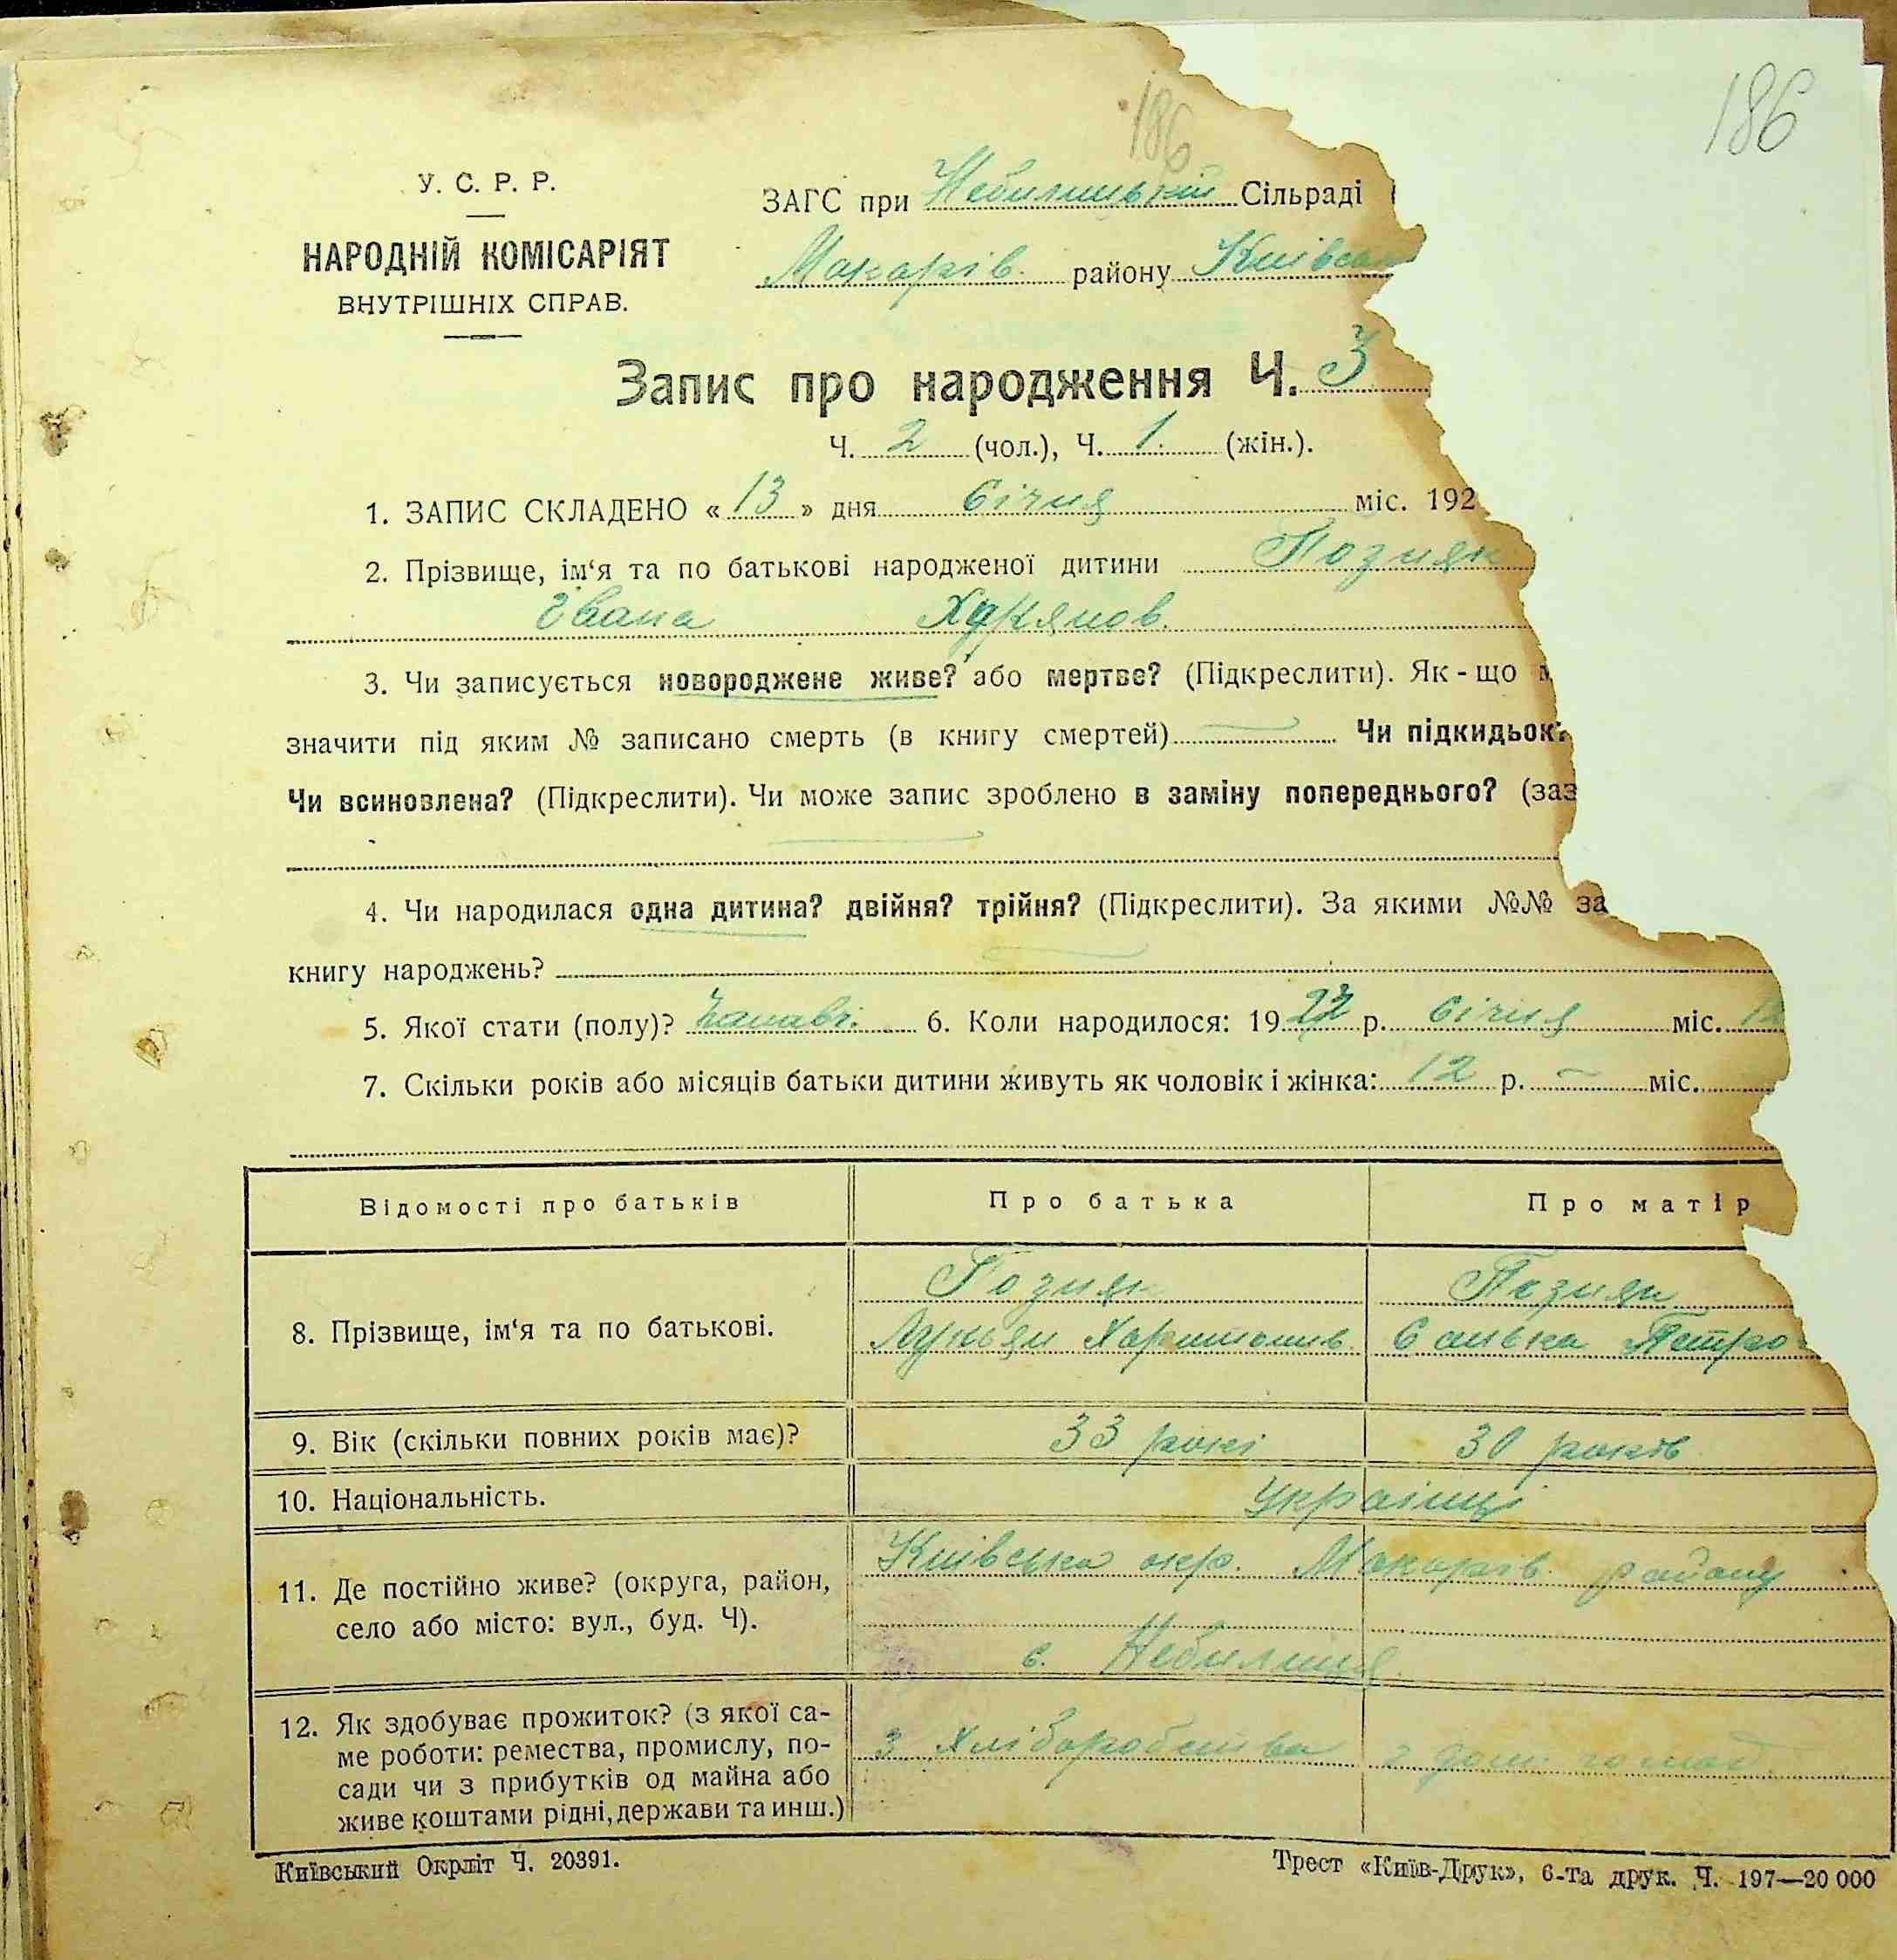 186
186
У. С. Р. Р.
НАРОДНІЙ КОМІСАРІЯТ
ВНУТРІШНІХ СПРАВ.
ЗАГС при Небилицькій Сільраді
Макарів. району Київськ
Запис про народження Ч. 3
Ч. 2 (чол.), Ч. 1. (жін.).
1. ЗАПИС СКЛАДЕНО «13» дня Січня міс. 192
2. Прізвище, ім‘я та по батькові народженої дитини Позняк
Івана
3. Чи записується новороджене живе? або мертве? (Підкреслити). Як-що м
значити під яким № записано смерть (в книгу смертей) Чи підкидьок?
Чи всиновлена? (Підкреслити). Чи може запис зроблено в заміну попереднього? (заз
4. Чи народилася одна дитина? двійня? трійня? (Підкреслити). За якими №№ за
книгу народжень?
5. Якої стати (полу)? 6. Коли народилося: 19 р. Січня міс. 12
7. Скільки років або місяців батьки дитини живуть як чоловік і жінка: 12 р. – міс.
Відомості про батьків Про батька Про матір
8. Прізвище, ім‘я та по батькові. Позняк Позняк
Лукьян Харитонив. Петро
9. Вік (скільки повних років має)? 33 рокі 30 років
10. Національність. Українці
11. Де постійно живе? (округа, район,
село або місто: вул., буд. Ч).
Київська окр. Макарів. району
с. Небилиця
12. Як здобуває прожиток? (з якої са-
ме роботи: ремества, промислу, по-
сади чи з прибутків од майна або
живе коштами рідні, держави та инш.)
з Хліборобства з дом.
Київський Окрліт Ч. 20391.
Трест «Київ-Друк», 6-та друк. Ч. 197—20 000